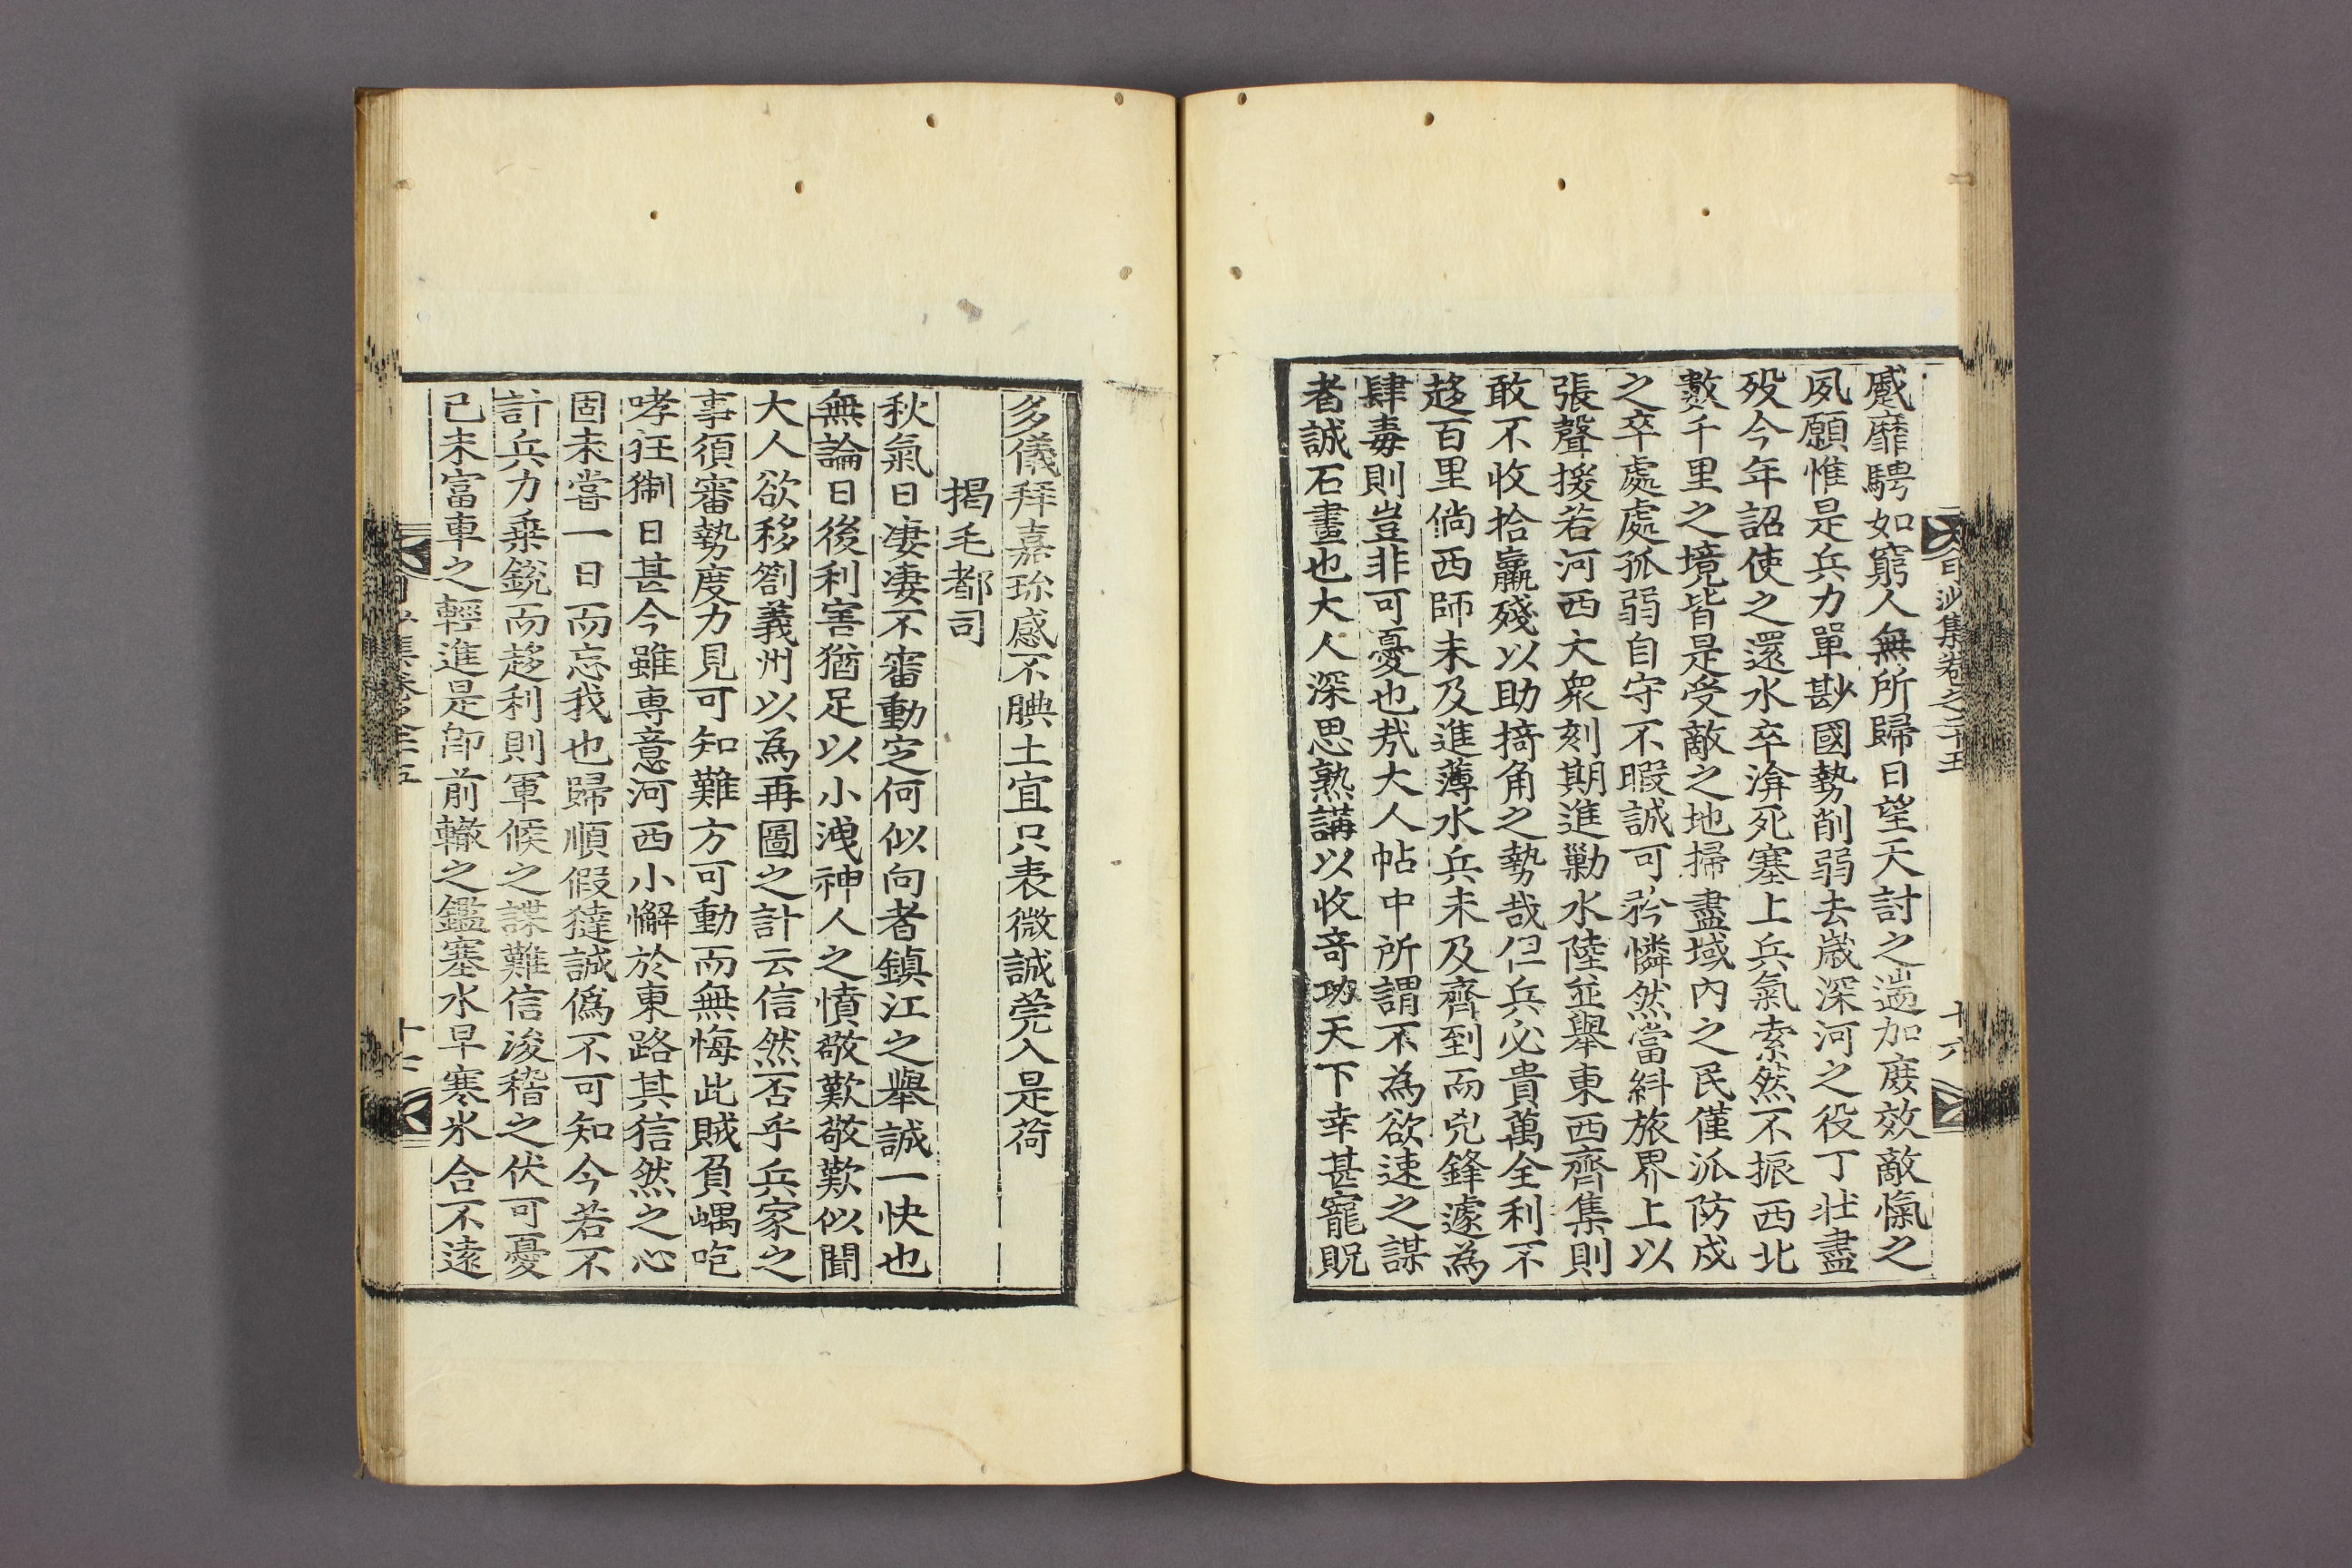 蹙靡騁如窮人無所歸日望天討之遄加庶效敵愾之
夙願惟是兵力單尠國勢削弱去歲深河之役丁壯盡
歿今年詔使之還水卒渰死塞上兵氣索然不振西北
數千里之境皆是受敵之地掃盡域內之民僅派防戍
之卒處處孤弱自守不暇誠可矜憐然當糾旅界上以
張聲援若河西大衆刻期進勦水陸並舉東西齊集則
敢不收拾羸殘以助掎角之勢哉但兵必貴萬全利不
趍百里倘西師未及進薄水兵未及齊到而兇鋒遽為
肆毒則豈非可憂也㢤大人帖中所謂不為欲速之謀
者誠石畫也大人深思熟講以收奇功天下幸甚寵貺
月沙集卷之三十五
十六
多儀拜嘉珎感不腆土宜只表微誠莞入是荷
揭毛都司
秋氣日凄凄不審動定何似向者鎮江之舉誠一快也
無論日後利害猶足以小洩神人之憤敬歎敬歎似聞
大人欲移劄義州以為再圖之計云信然否乎兵家之
事須審勢度力見可知難方可動而無悔此賊負嵎咆
哮狂猘日甚今雖專意河西小懈於東路其信然之心
固未嘗一日而忘我也歸順假㺚誠僞不可知今若不
計兵力乗銳而趍利則軍候之諜難信浚稽之伏可憂
己未富車之輕進是卽前轍之鑑塞水早寒氷合不遠
集卷之三十五